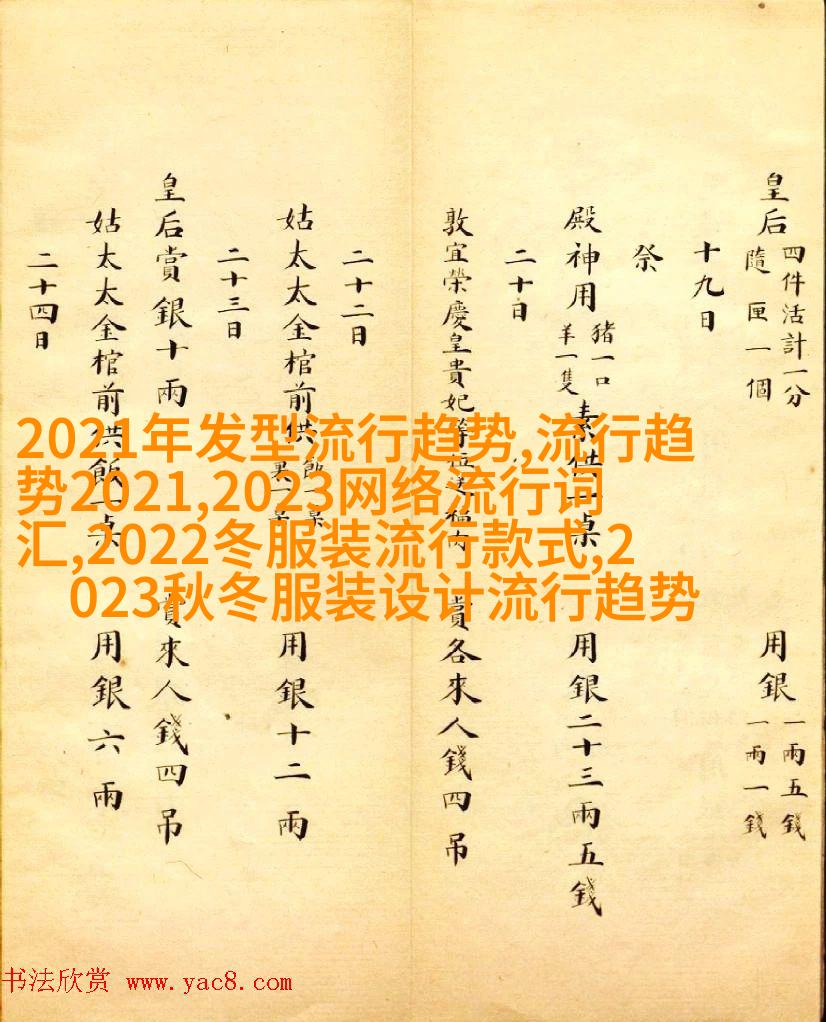 皇后 四件活計一分 隨匣一個 用銀 一兩五錢 一兩一錢
十九日
祭
殿神用 猪一口 羊一隻 素供一桌 用銀二十三兩五錢
二十日
敦宜榮慶皇貴妃等位 賞各來人錢四吊
二十二日
姑太太金棺前供 用銀十二兩
二十三日
皇后賞銀十兩 賞來人錢四吊
姑太太金棺前供飯一桌 用銀六兩
二十四日
2021年发型流行趋势,流行趋
势2021,2023网络流行词
汇,2022冬服装流行款式,2
023秋冬服装设计流行趋势
书法欣赏 www.yac8.com